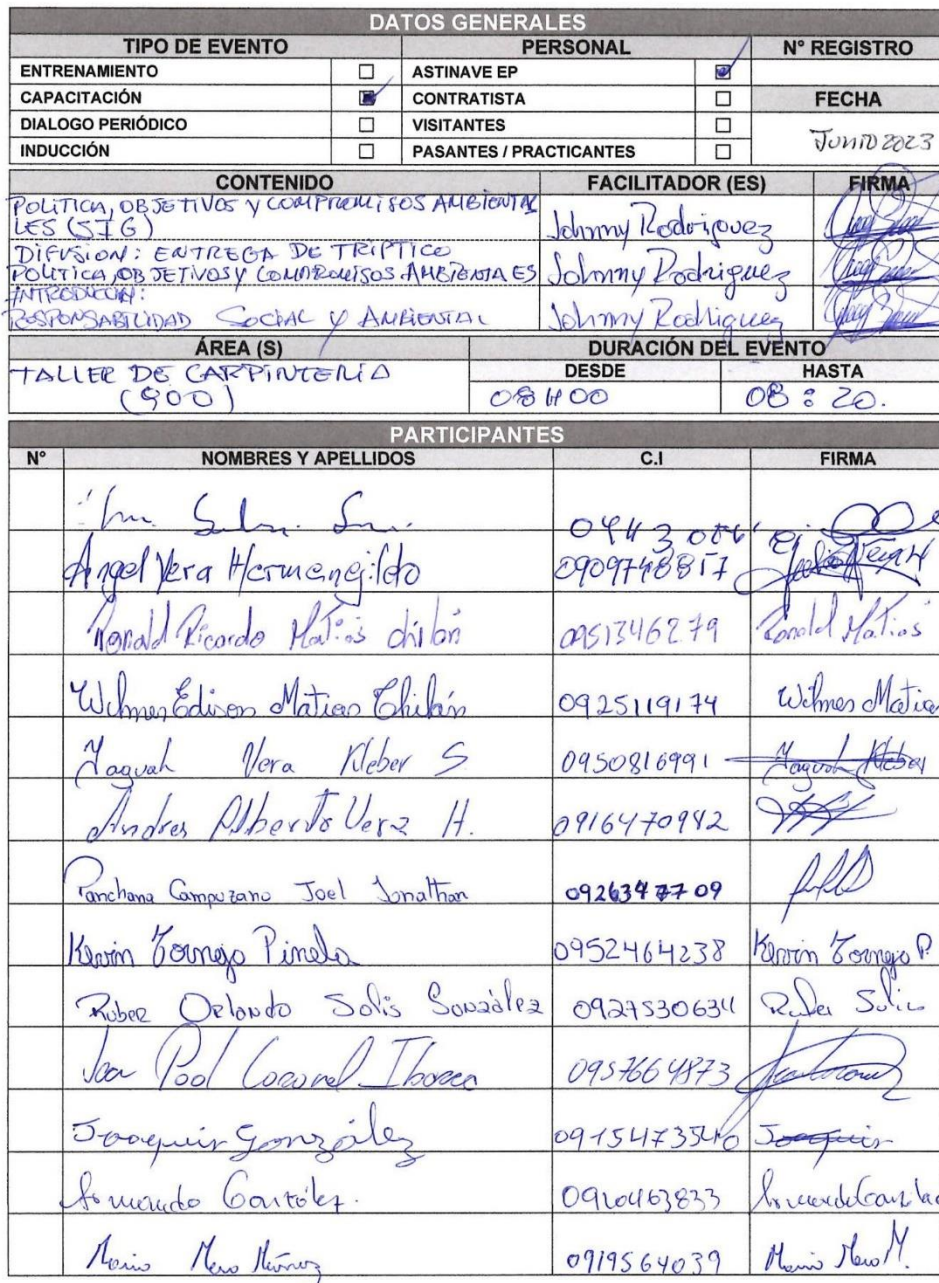 DATOS GENERALES
TIPO DE EVENTO PERSONAL N° REGISTRO
ENTRENAMIENTO ☐ ASTINAVE EP ☑
CAPACITACIÓN ☑ CONTRATISTA ☐ FECHA
DIALOGO PERIÓDICO ☐ VISITANTES ☐ JUNIO 2023
INDUCCIÓN ☐ PASANTES / PRACTICANTES ☐
CONTENIDO FACILITADOR (ES) FIRMA
POLÍTICA, OBJETIVOS Y COMPROMISOS AMBIENTA
LES (SIG) Johnny Rodriguez
DIFUSION: ENTREGA DE TRIPTICO
POLITICA, OBJETIVOS Y COMPROMISOS AMBIENTA ES Johnny Rodriguez
INTRODUCCION:
RESPONSABILIDAD SOCIAL Y AMBIENTAL Johnny Rodriguez
ÁREA (S) DURACIÓN DEL EVENTO
TALLER DE CARPINTERIA DESDE HASTA
(900) 08H00 08:20.
PARTICIPANTES
N° NOMBRES Y APELLIDOS C.I FIRMA
Angel Vera Hermenegildo 0909748857
Ronald Ricardo Matias chilán 0951346279 Ronald Matias
Wilmer Edison Matias Chilán 0925119174 Wilmer Matias
Yagual Vera Kleber S 0950816991 Yagual Kleber
Andres Alberto Vera H. 0916470942
Panchana Campuzano Joel Jonathan 0926347709
Kevin Tornejo Pinela 0952464238 Kevin Tornejo P.
Ruber Orlando Solis Gonzàlez 0927530634 Ruber Solis
Pool Coronel 0957664873
Joaquin González 0915473540 Joaquin
Armando González. 0920463833
Mario Mero Muñoz 0919564039 Mario Mero M.